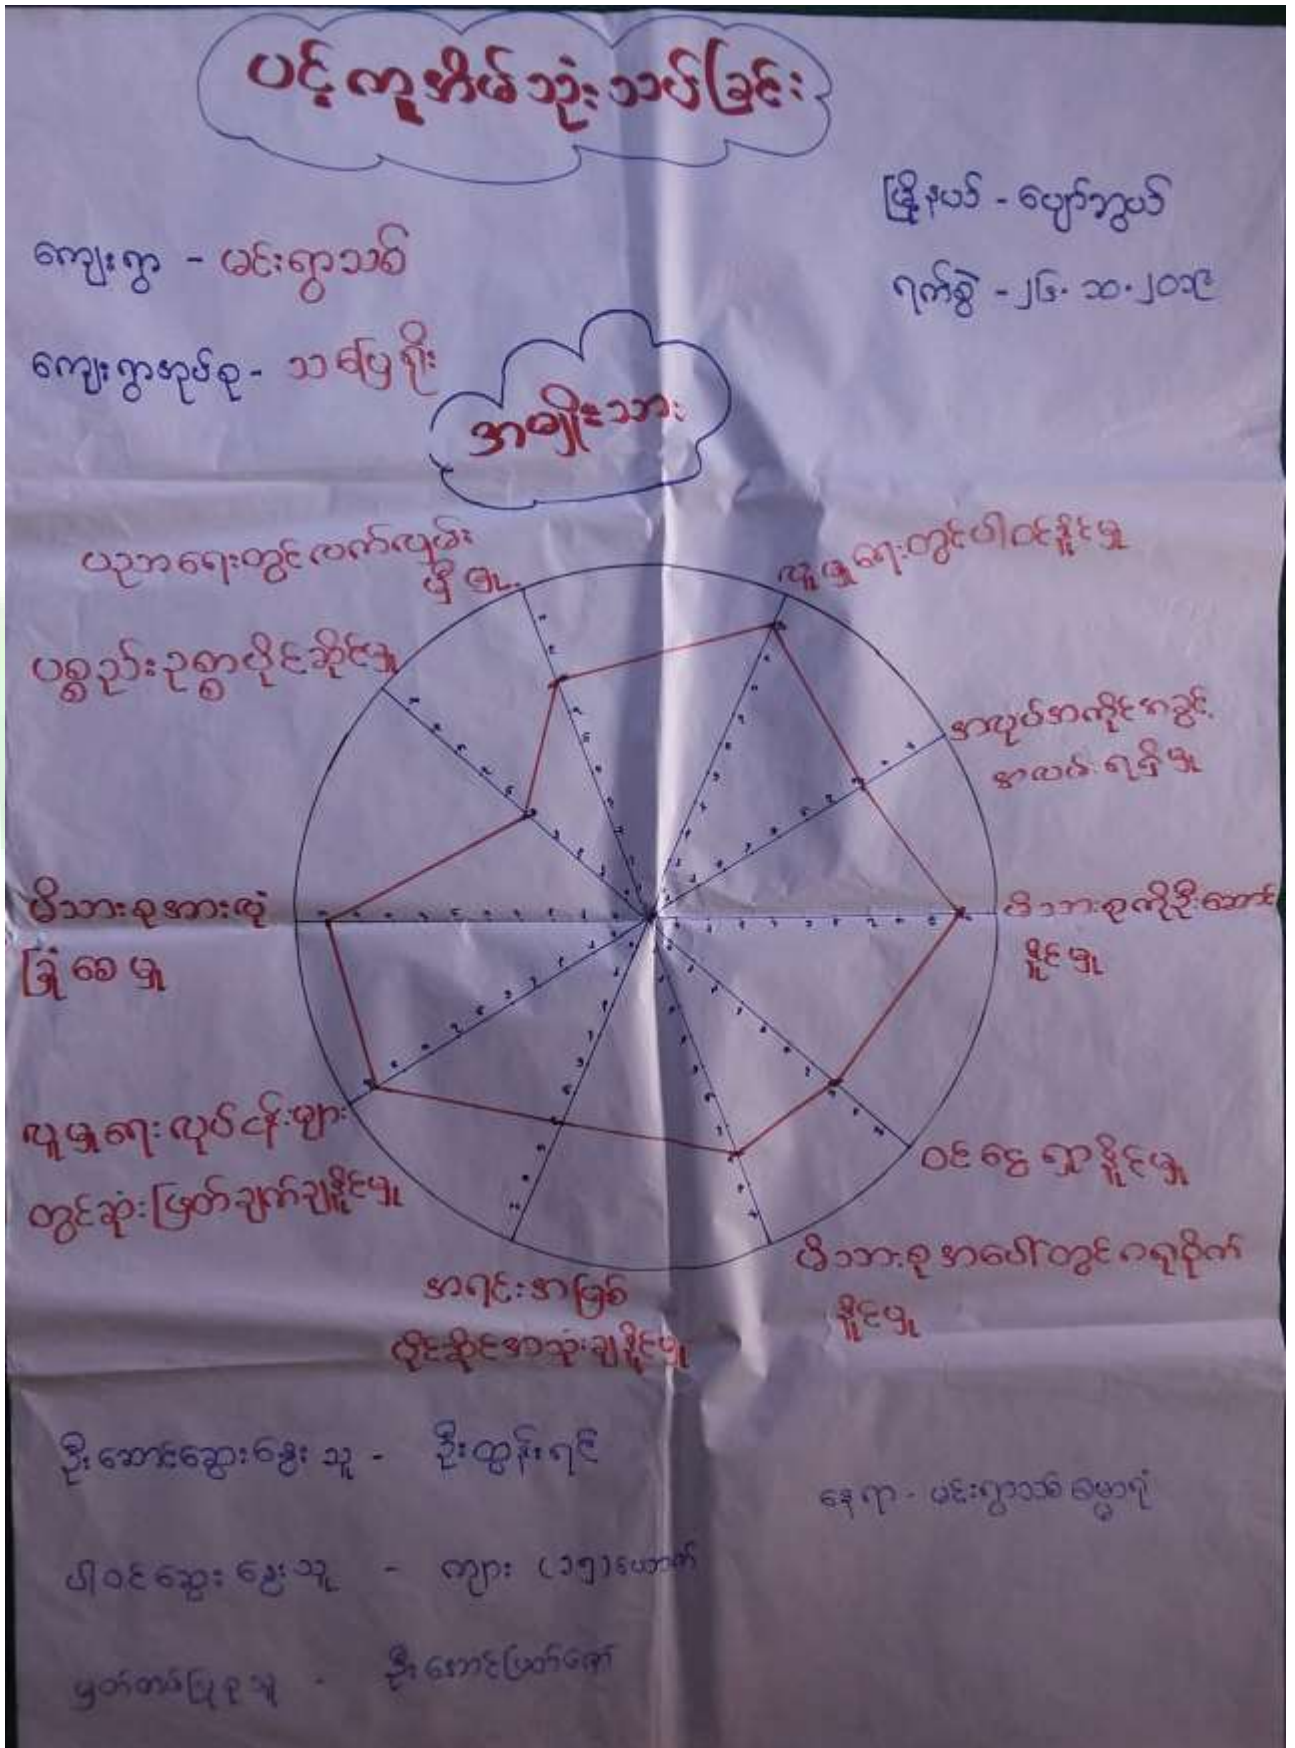 ပင့်ကူအိမ်သုံးသပ်ခြင်း
မြို့နယ် - ပျော်ဘွယ်
ကျေးရွာ - မင်းရွာသစ်
ရက်စွဲ - ၂၆.၁၀.၂၀၁၉
ကျေးရွာအုပ်စု -
အမျိုးသား
ပညာရေးတွင်လက်လှမ်း
မှီမှု
လူမှုရေးတွင်ပါဝင်နိုင်မှု
ပစ္စည်းဥစ္စာပိုင်ဆိုင်မှု
အလုပ်အကိုင်အခွင့်
အလမ်းရရှိမှု
မိသားစုအားလုံ
ခြုံစေမှု
မိသားစုကိုဦးဆောင်
နိုင်မှု
လူမှုရေးလုပ်ငန်းများ
တွင်ဆုံးဖြတ်ချက်ချနိုင်မှု
ဝင်ငွေရှာနိုင်မှု
မိသားစုအပေါ်တွင်ဂရုစိုက်
နိုင်မှု
အရင်းအမြစ်
ပိုင်ဆိုင်အသုံးချနိုင်မှု
ဦးဆောင်ဆွေးနွေးသူ - ဦးထွန်းရင်
နေရာ - မင်းရွာသစ်ဓမ္မာရုံ
ပါဝင်ဆွေးနွေးသူ - ကျား (၁၅)ယောက်
မှတ်တမ်းပြုစုသူ - ဦးအောင်ဖြတ်ဇော်